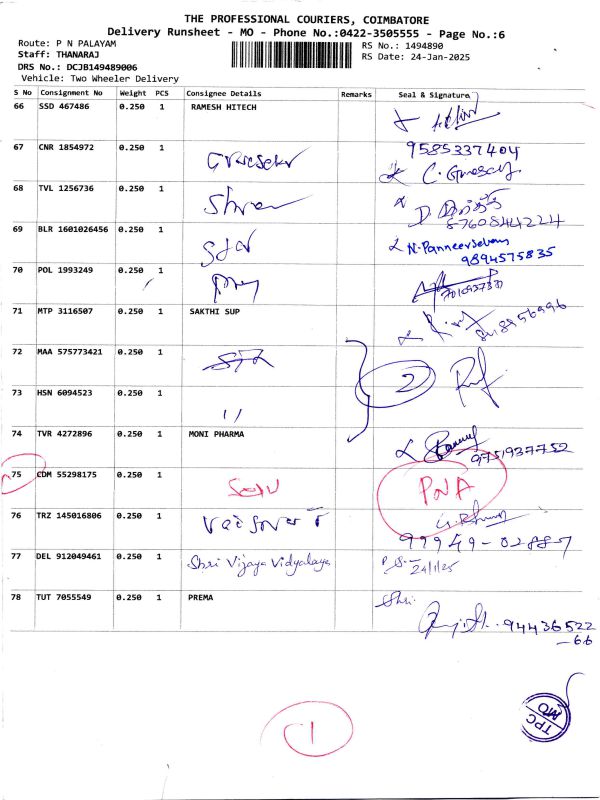 THE PROFESSIONAL COURIERS, COIMBATORE
Delivery Runsheet - MO - Phone No.:0422-3505555 - Page No.:6
Route: P N PALAYAM
RS No.: 1494890
Staff: THANARAJ
RS Date: 24-Jan-2025
DRS No.: DCJB149489006
Vehicle: Two Wheeler Delivery
S No Consignment No Weight PCS Consignee Details Remarks Seal & Signature
66 SSD 467486 0.250 1 RAMESH HITECH
67 CNR 1854972 0.250 1 9585337404
68 TVL 1256736 0.250 1
69 BLR 1601026456 0.250 1 N. Panneerselvam
9894575835
70 POL 1993249 0.250 1
71 MTP 3116507 0.250 1 SAKTHI SUP
72 MAA 575773421 0.250 1 2
73 HSN 6094523 0.250 1 11
74 TVR 4272896 0.250 1 MONI PHARMA 9751937752
75 CDM 55298175 0.250 1 PNA
76 TRZ 145016806 0.250 1 99949-02887
77 DEL 912049461 0.250 1 Shri Vijaya Vidyalaya 24/1/25
78 TUT 7055549 0.250 1 PREMA Shri.
94436522
-66
1
TPC
MO